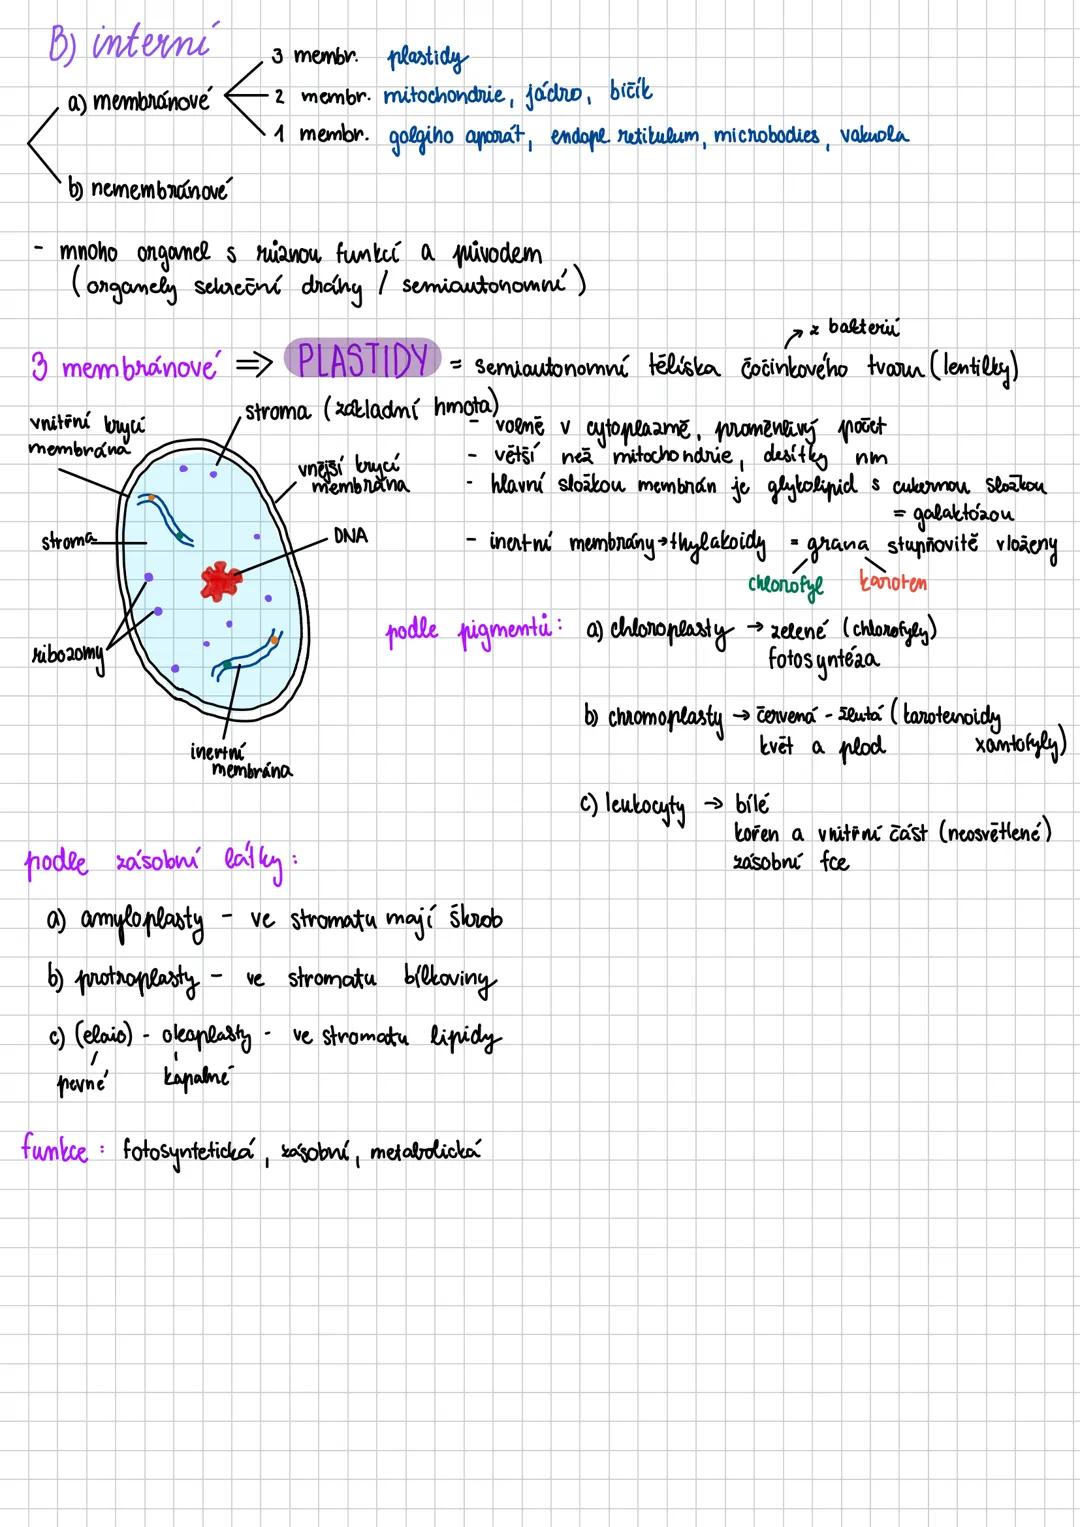 B) interní
a) membránové
3 membr. plastidy
2 membr. mitochondrie, jádro, bičík
1 membr. golgiho aparát, endopl. retikulum, microbodies, vakuola
b) nemembránové
- mnoho organel s různou funkcí a původem
(organely sekreční dráhy / semiautonomní)
z bakterií
3 membránové ⇒ PLASTIDY = semiautonomní tělíska čočinkového tvaru (lentilky)
vnitřní krycí
membrána
stroma (základní hmota)
vnější krycí
membrána
stroma
DNA
ribozomy
inertní
membrána
- volně v cytoplazmě, proměnlivý počet
- větší než mitochondrie, desítky nm
- hlavní složkou membrán je glykolipid s cukernou složkou
= galaktózou
- inertní membrány → thylakoidy = grana stupňovitě vloženy
chlorofyl karoten
podle pigmentů: a) chloroplasty → zelené (chlorofyly)
fotosyntéza
b) chromoplasty → červená - žlutá (karotenoidy
květ a plod xantofyly)
c) leukocyty → bílé
kořen a vnitřní část (neosvětlené)
zásobní fce
podle zásobní látky:
a) amyloplasty - ve stromatu mají škrob
b) protroplasty - ve stromatu bílkoviny
c) (elaio) - oleoplasty - ve stromatu lipidy
pevné kapalné
funkce: fotosyntetická, zásobní, metabolická